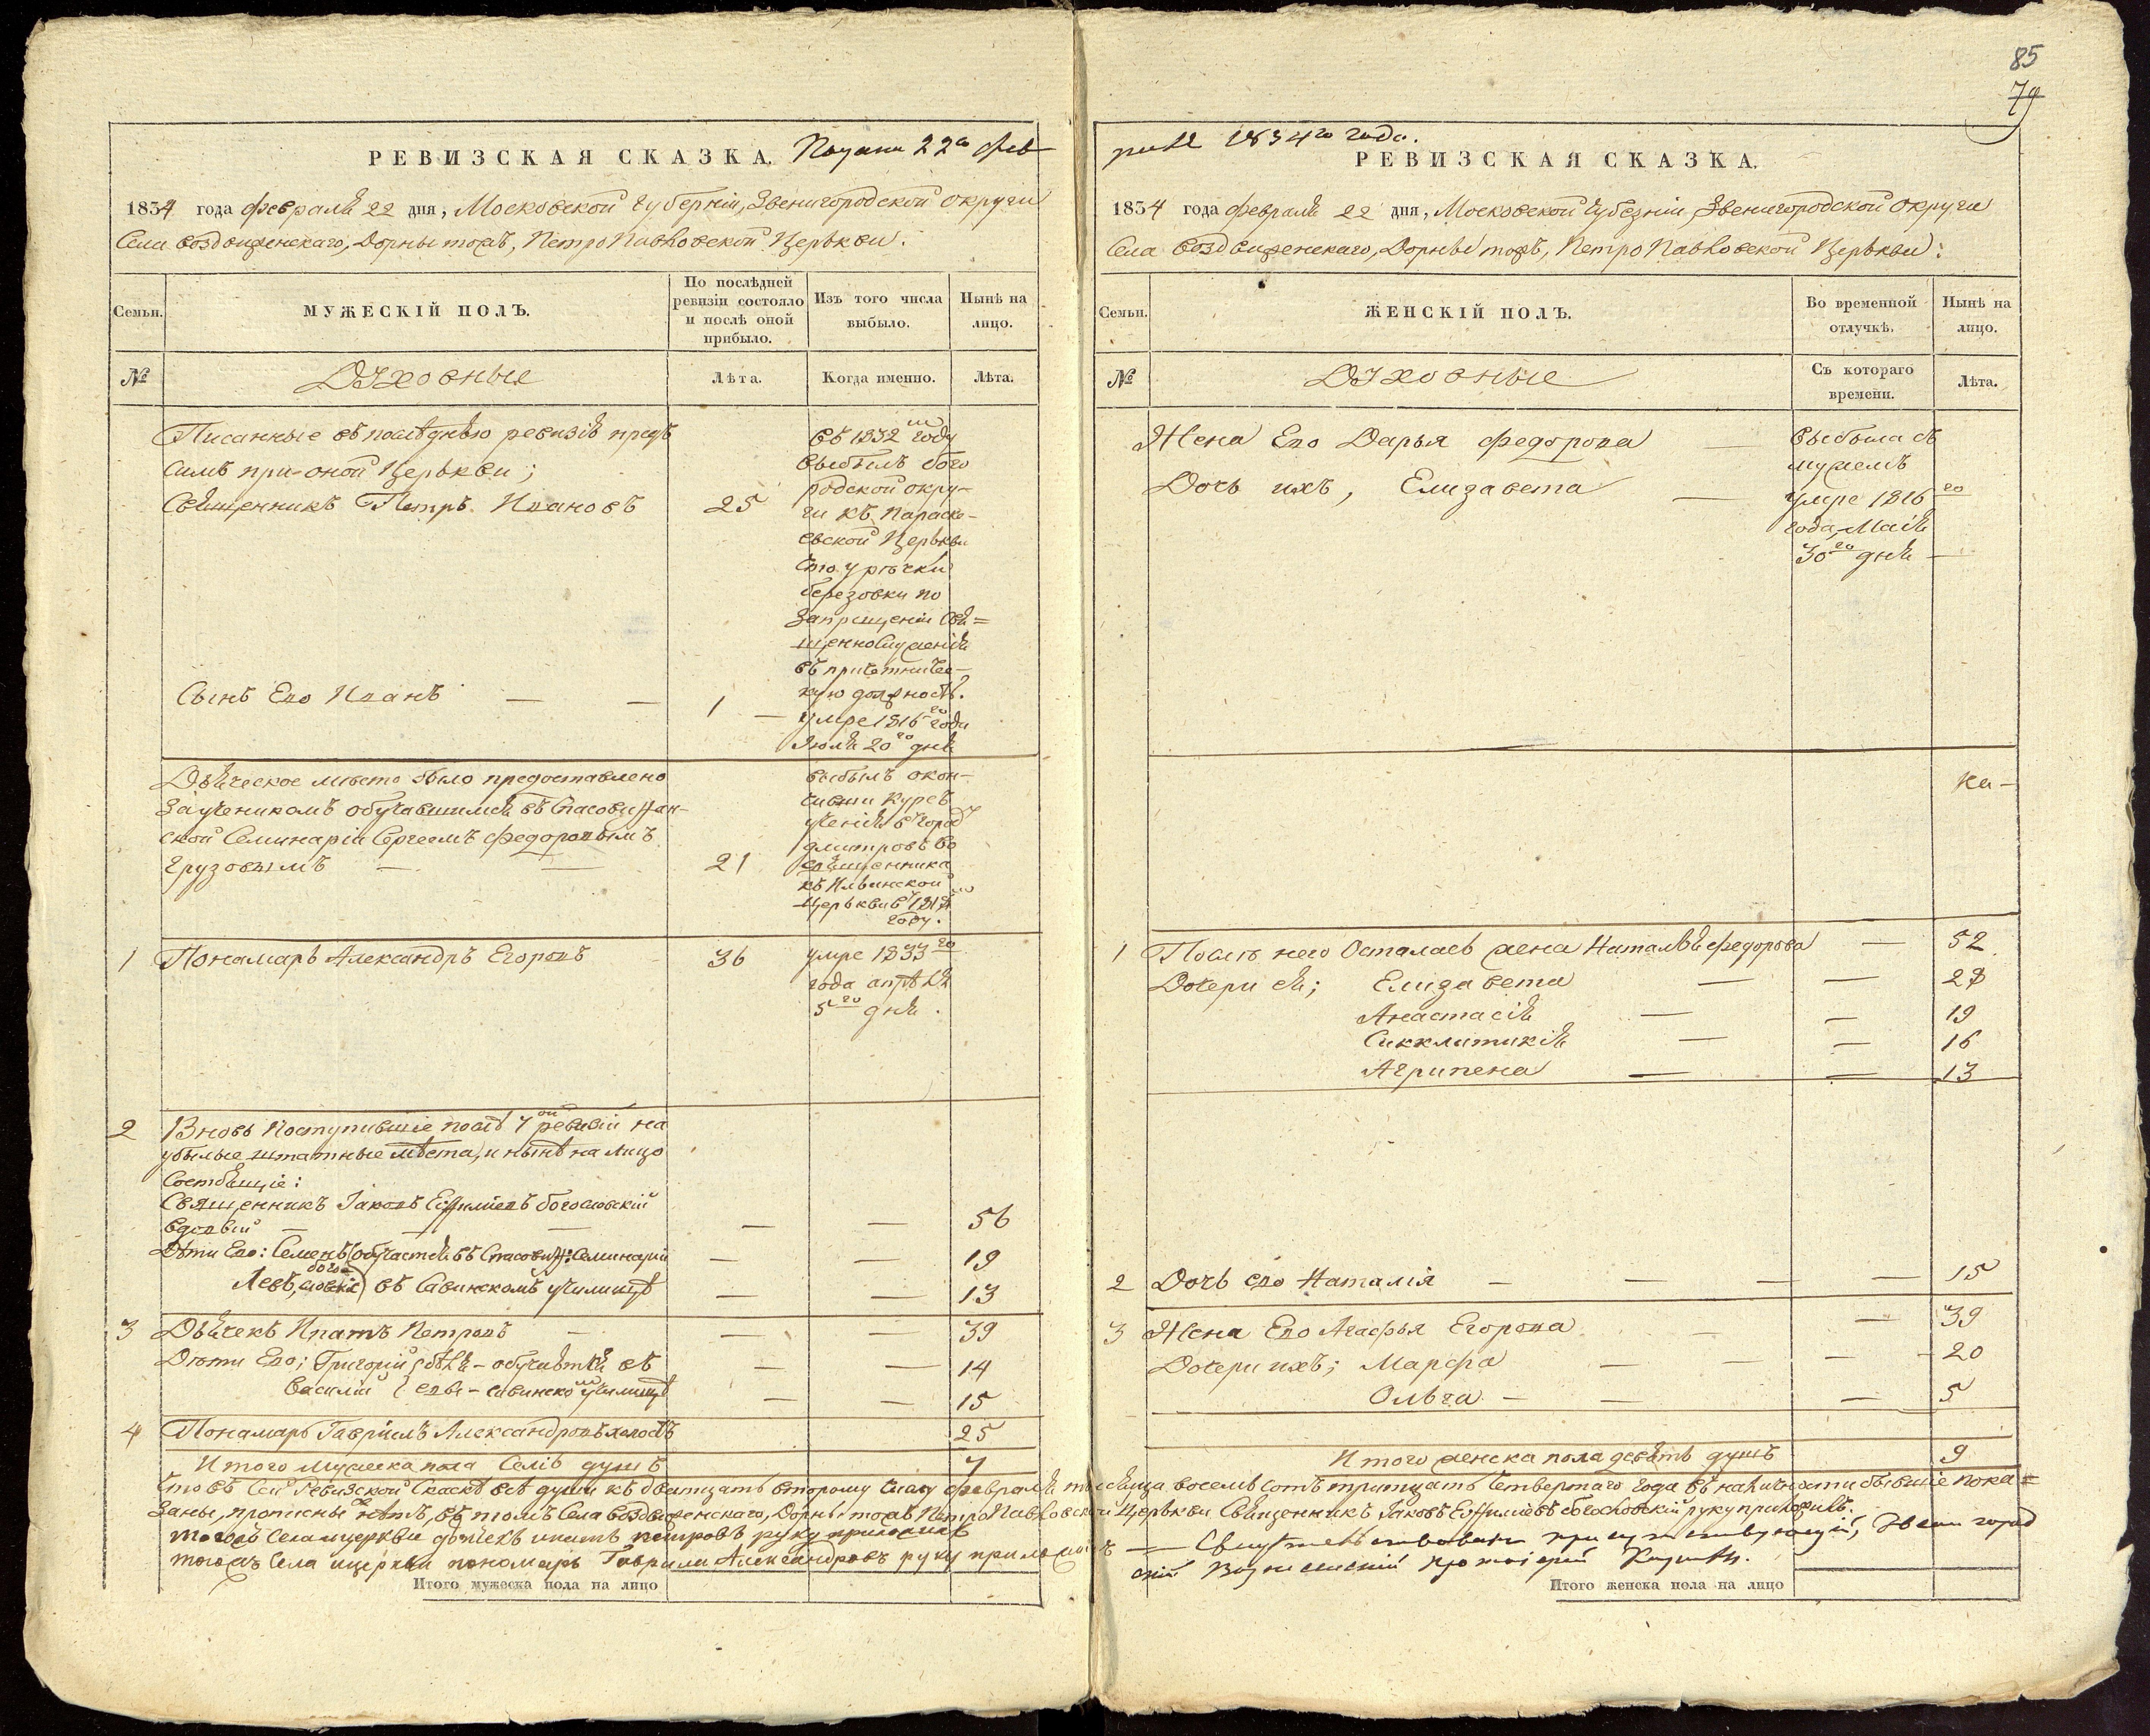 РЕВИЗСКАЯ СКАЗКА. Подана 22го фев
1834 года февраля 22 дня, Московской Губерніи, Звенигородской округи
Села Воздвиженскаго, Дорны тожъ, ПетроПавловской Церькви.
Семьи.
МУЖЕСКІЙ ПОЛЪ.
По послѣдней
ревизіи состояло
и послѣ оной
прибыло.
Изъ того числа
выбыло.
Нынѣ на
лицо.
№
Духовные
Лѣта.
Когда именно.
Лѣта.
Писанные въ послѣднѣю ревизію предъ
симъ при оной Церькви;
Священникъ Петръ Ивановъ 25
въ 1832мъ году
выбылъ бого
родской окру-
ги къ Параске-
евской Церькви
что у рѣчки
березовки по
запрещеніи Свя=
щеннослуженія
въ причетничес-
кую должность.
Сынъ Его Иванъ — — 1 —
умре 1816го года
Июля 20го дня
Дьяческое мѣсто было предоставлено
за ученикомъ обучавшимся въ Спасовифан-
ской Семинаріи Сергеемъ Федоровымъ
Грузовымъ — — 21
выбылъ окон-
чивши курсъ
ученія въ город
дмитровъ во
священника
къ Ильинской
Церькви въ 181
году.
1 Пономарь Александръ Егоровъ 36
умре 1833го
года апрѣля
5го дня.
2 Вновь Поступившіе послѣ 7ой ревизіи на
убылые штатные мѣста, и нынѣ на лицо
Состоящіе:
Священникъ Іаковъ Ефимiевъ богословскій
вдовый — — — — — 56
Дѣти Его: Семенъ обучается въ Спасовиф: Семинаріи — — 19
Левъ, богословскіе) въ Савинскомъ училищѣ — — 13
3 Дьячекъ Ипатъ Петровъ — — — 39
Дѣти Его; Григорій бѣля- обучаются въ — — 14
Василій евы- Савинскомъ училищѣ — — 15
4 Пономарь Гавріилъ Александровъ холостъ 25
Итого мужеска пола Семь душъ 7
Итого мужеска пола на лицо
85
79
раля 1834го года.
РЕВИЗСКАЯ СКАЗКА.
1834 года февраля 22 дня, Московской Губерніи, Звенигородской округи
Села Воздвиженскаго, Дорны тожъ, ПетроПавловской Церькви:
Семьи.
ЖЕНСКІЙ ПОЛЪ.
Во временной
отлучкѣ.
Нынѣ на
лицо.
№
Духовные
Съ котораго
времени.
Лѣта.
Жена Его Дарья Федорова —
выбыла съ
мужемъ
Дочь ихъ, Елизавета —
умре 1816го
года, Маія
30го дня —
1 Послѣ него Осталась жена Наталья Федорова — 52
Дочери ея; Елизавета — — 28
Анастасія — — 19
Синклитикія — — 16
Агрипена — — 13
2 Дочь его Наталія — — — — 15
3 Жена Его Агафья Егорова — — 39
Дочери ихъ; Марфа — — — 20
Ольга — — — 5
Итого женска пола девять душъ 9
Что въ Сей Ревизской Сказкѣ всѣ души къ двадцать второму числу февраля мѣсяца восемь Сотъ тритцать Четвертаго года въ наличности бывшіе пока=
заны, прописныхъ нѣтъ, въ томъ Села Воздвиженскаго, Дорны тожъ ПетроПавловской Церькви Священникъ Іаковъ Ефимiевъ богословскій руку приложилъ.
тогожъ Села церкви дьячекъ ипатъ петровъ руку приложилъ
тогожъ Села ицеркви пономарь Гаврила Александровъ руку приложилъ — Свидѣтельствовалъ присутствующій, Звенигород
скій Вознесенскій протоіерей
Итого женска пола на лицо